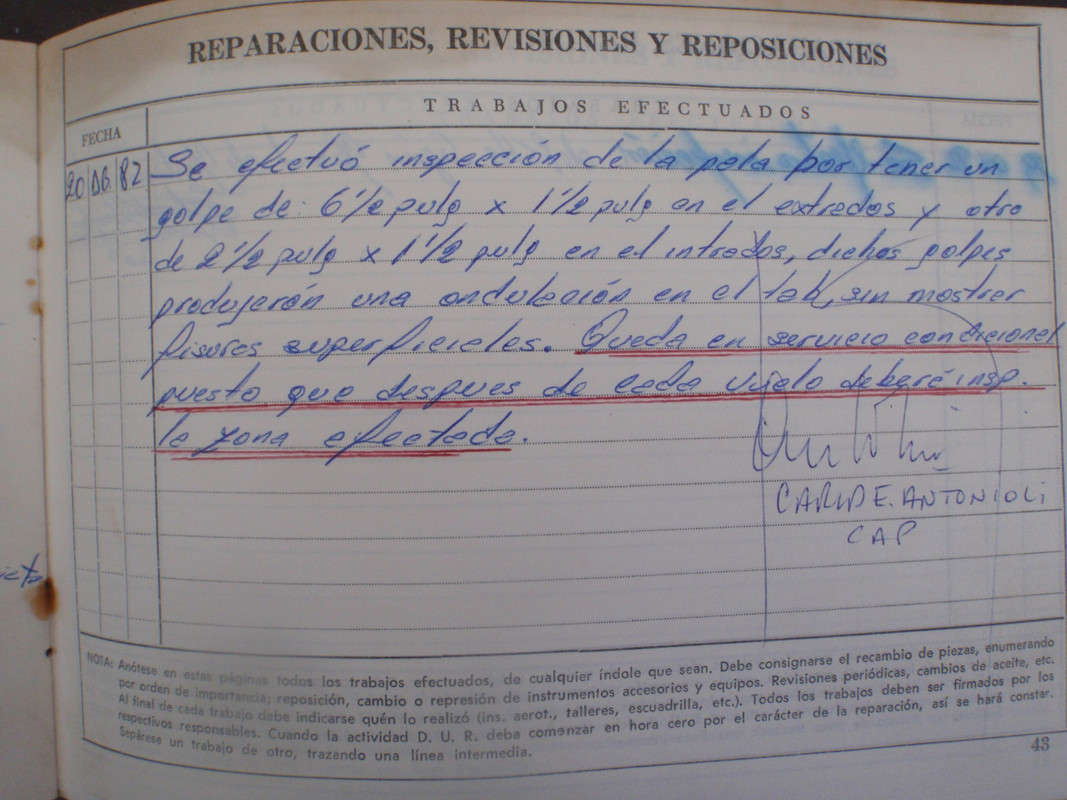 REPARACIONES, REVISIONES Y REPOSICIONES
TRABAJOS EFECTUADOS
FECHA
20 DG. 82 Se efectuó inspección de la pala por tener un
golpe de: 6 1/2 pulg x 1 1/2 pulg en el extrados y otro
de 2 1/2 pulg x 1 1/2 pulg en el intrados, dichos golpes
produjerón una ondulación en el tab, sin mostrar
fisuras superficiales. Queda en servicio condicional
puesto que despues de cada vuelo deberá insp.
la zona afectada.
E. ANTONIOLI
CAP
NOTA: Anótese en estas páginas todos los trabajos efectuados, de cualquier índole que sean. Debe consignarse el recambio de piezas, enumerando
por orden de importancia; reposición, cambio o represión de instrumentos accesorios y equipos. Revisiones periódicas, cambios de aceite, etc.
Al final de cada trabajo debe indicarse quén lo realizó (ins. aerot., talleres, escuadrilla, etc.). Todos los trabajos deben ser firmados por los
respectivos responsables. Cuando la actividad D. U. R. deba comenzar en hora cero por el carácter de la reparación, así se hará constar.
Sepárese un trabajo de otro, trazando una línea intermedia.
43